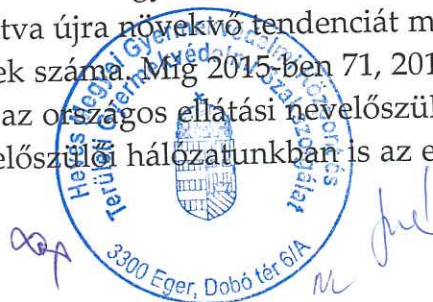 tva újra növekvő tendenciát m
ek száma. Míg 2015-ben 71, 201
az országos ellátási nevelőszül
előszülői hálózatunkban is az e
Heves Megyei Gyermekvédelmi Központ és
Területi Gyermekvédelmi Szakszolgálat
3300 Eger, Dobó tér 6/A